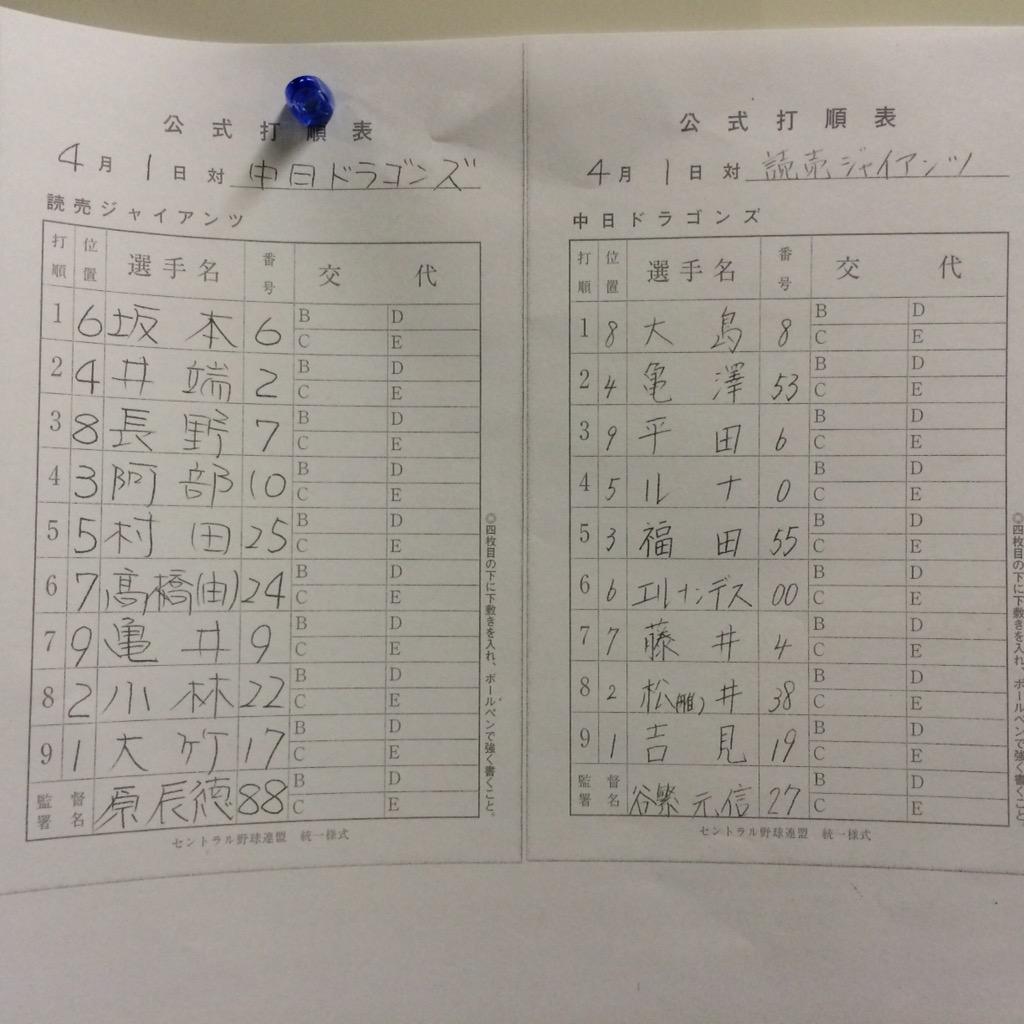 公式打順表
4月1日対 中日ドラゴンズ
読売ジャイアンツ
打順 位置 選手名 番号 交代
1 6 坂本 6 B D C E
2 4 井端 2 B D C E
3 8 長野 7 B D C E
4 3 阿部 10 B D C E
5 5 村田 25 B D C E
6 7 高橋(由) 24 B D C E
7 9 亀井 9 B D C E
8 2 小林 22 B D C E
9 1 大竹 17 B D C E
監督署名 原辰徳 88 B D C E
◎四枚目の下に下敷きを入れ、ボールペンで強く書くこと。
セントラル野球連盟 統一様式
公式打順表
4月1日対 読売ジャイアンツ
中日ドラゴンズ
打順 位置 選手名 番号 交代
1 8 大島 8 B D C E
2 4 亀澤 53 B D C E
3 9 平田 6 B D C E
4 5 ルナ 0 B D C E
5 3 福田 55 B D C E
6 6 エルナンデス 00 B D C E
7 7 藤井 4 B D C E
8 2 松井(雅) 38 B D C E
9 1 吉見 19 B D C E
監督署名 谷繁元信 27 B D C E
◎四枚目の下に下敷きを入れ、ボールペンで強く書くこと
セントラル野球連盟 統一様式